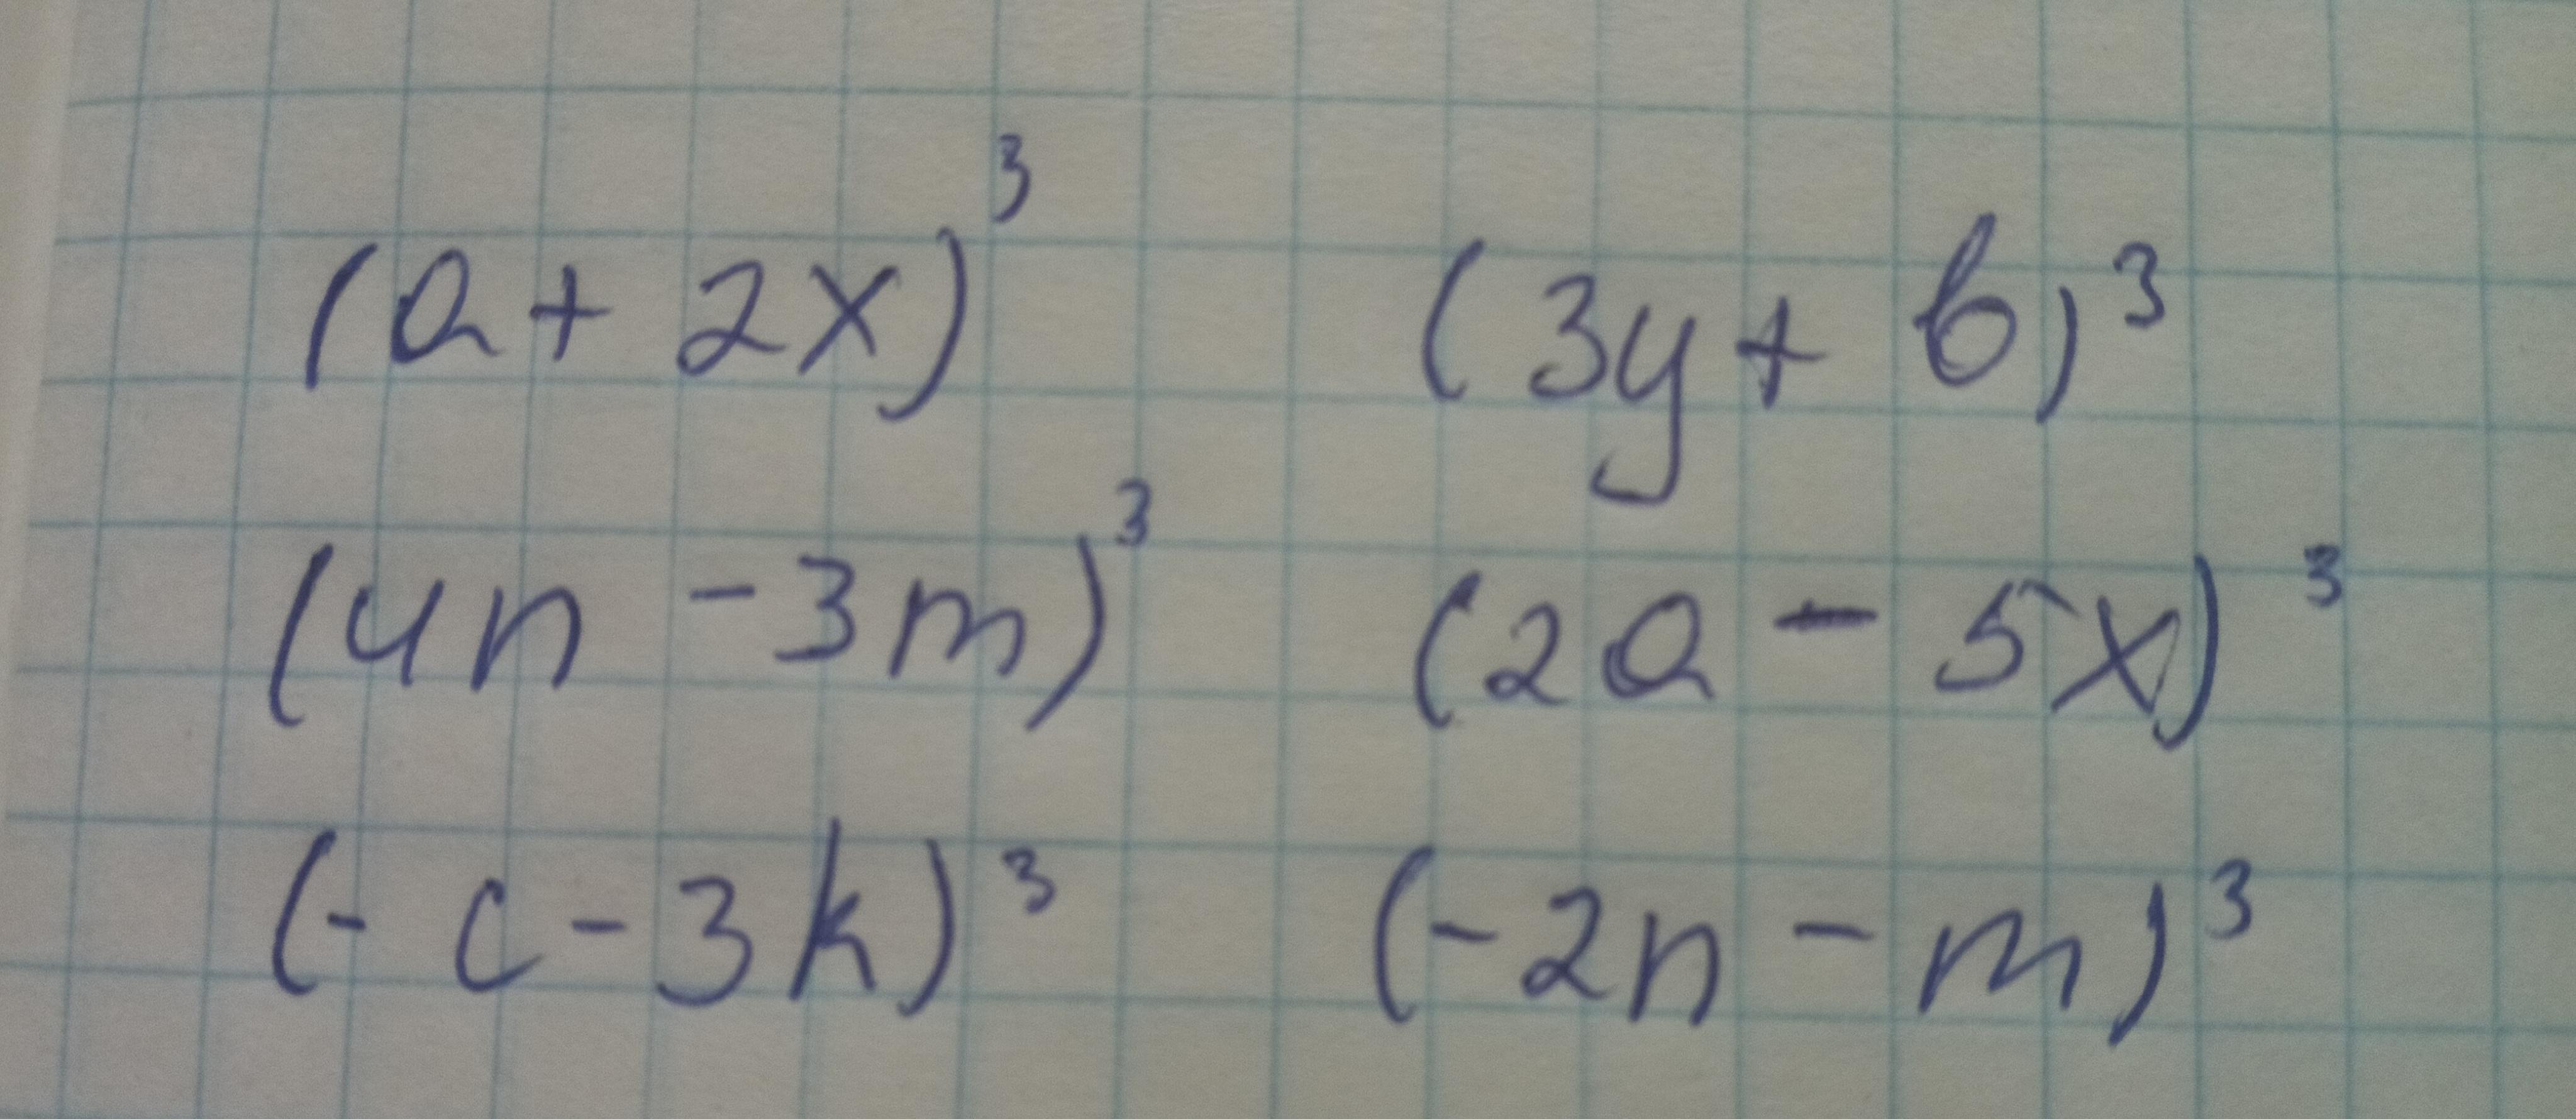 (a + 2x)³ (3y + b)³
(4n - 3m)³ (2a - 5x)³
(- c - 3k)³ (- 2n - m)³